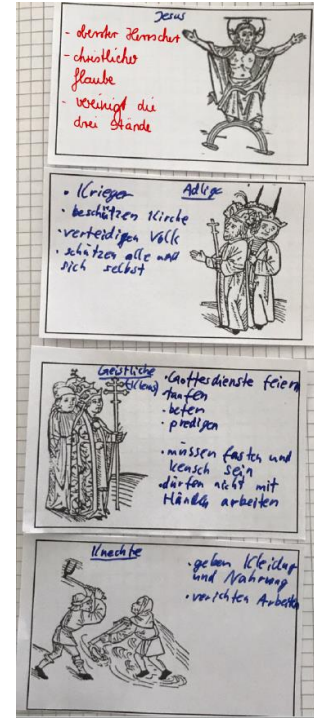 Jesus
- oberster Herrscher
- christlicher
Glaube
- vereinigt die
drei Stände
Adlige
• Krieger
• beschützen Kirche
• verteidigen Volk
• schützen alle und
sich selbst
Geistliche
(Klerus)
• Gottesdienste feiern
• taufen
• beten
• predigen
• müssen fasten und
keusch sein
• dürfen nicht mit
Händen arbeiten
Knechte
• geben Kleidung
und Nahrung
• verichten Arbeiten